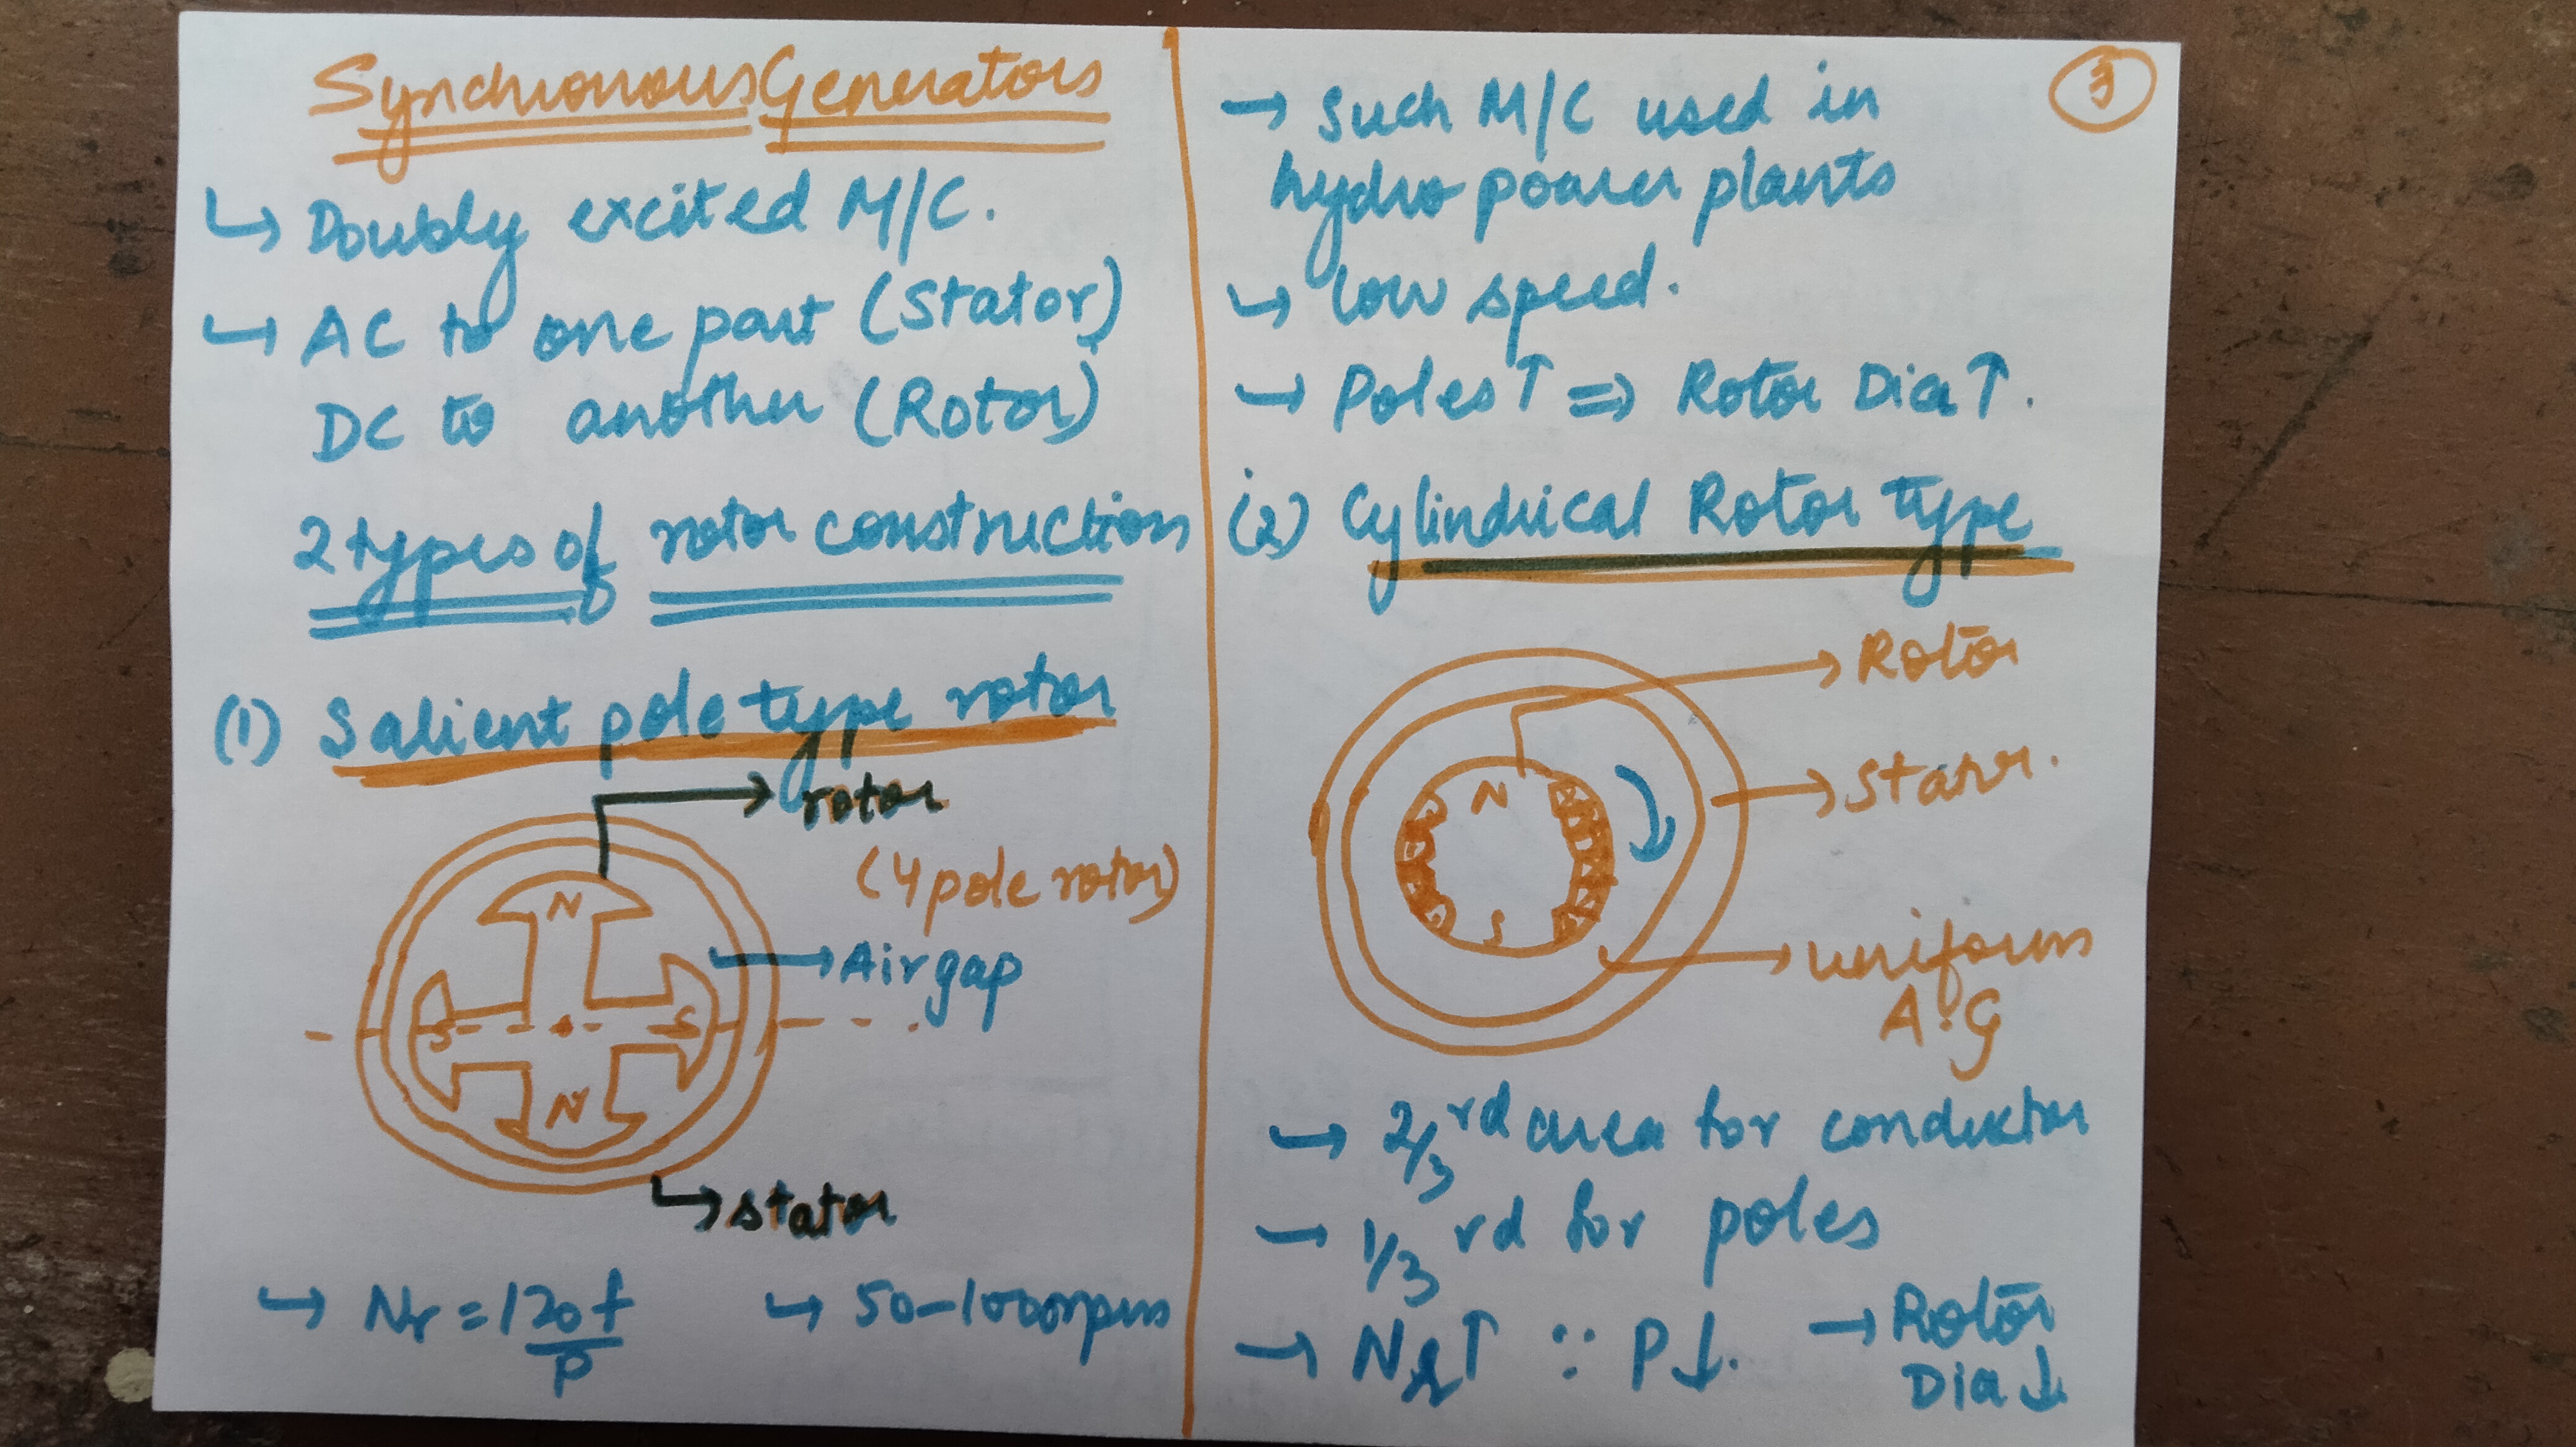 Synchronous Generators
↳ Doubly excited M/C.
↳ AC to one part (Stator)
DC to another (Rotor)
2 types of rotor construction
(1) Salient pole type rotor
→ rotor
(4 pole rotor)
N
→ Airgap
S S
N
↳ stator
↳ Nr = 120f/P ↳ 50-1000rpm
3
→ Such M/C used in
hydro power plants
↳ low speed.
↳ Poles↑ ⇒ Rotor Dia↑.
(2) Cylindrical Rotor type
→ Rotor
N
→ Stator.
S
→ uniform
A.G
↳ 2/3rd area for conductor
→ 1/3rd for poles
→ Nr↑ ∵ P↓. → Rotor
Dia↓